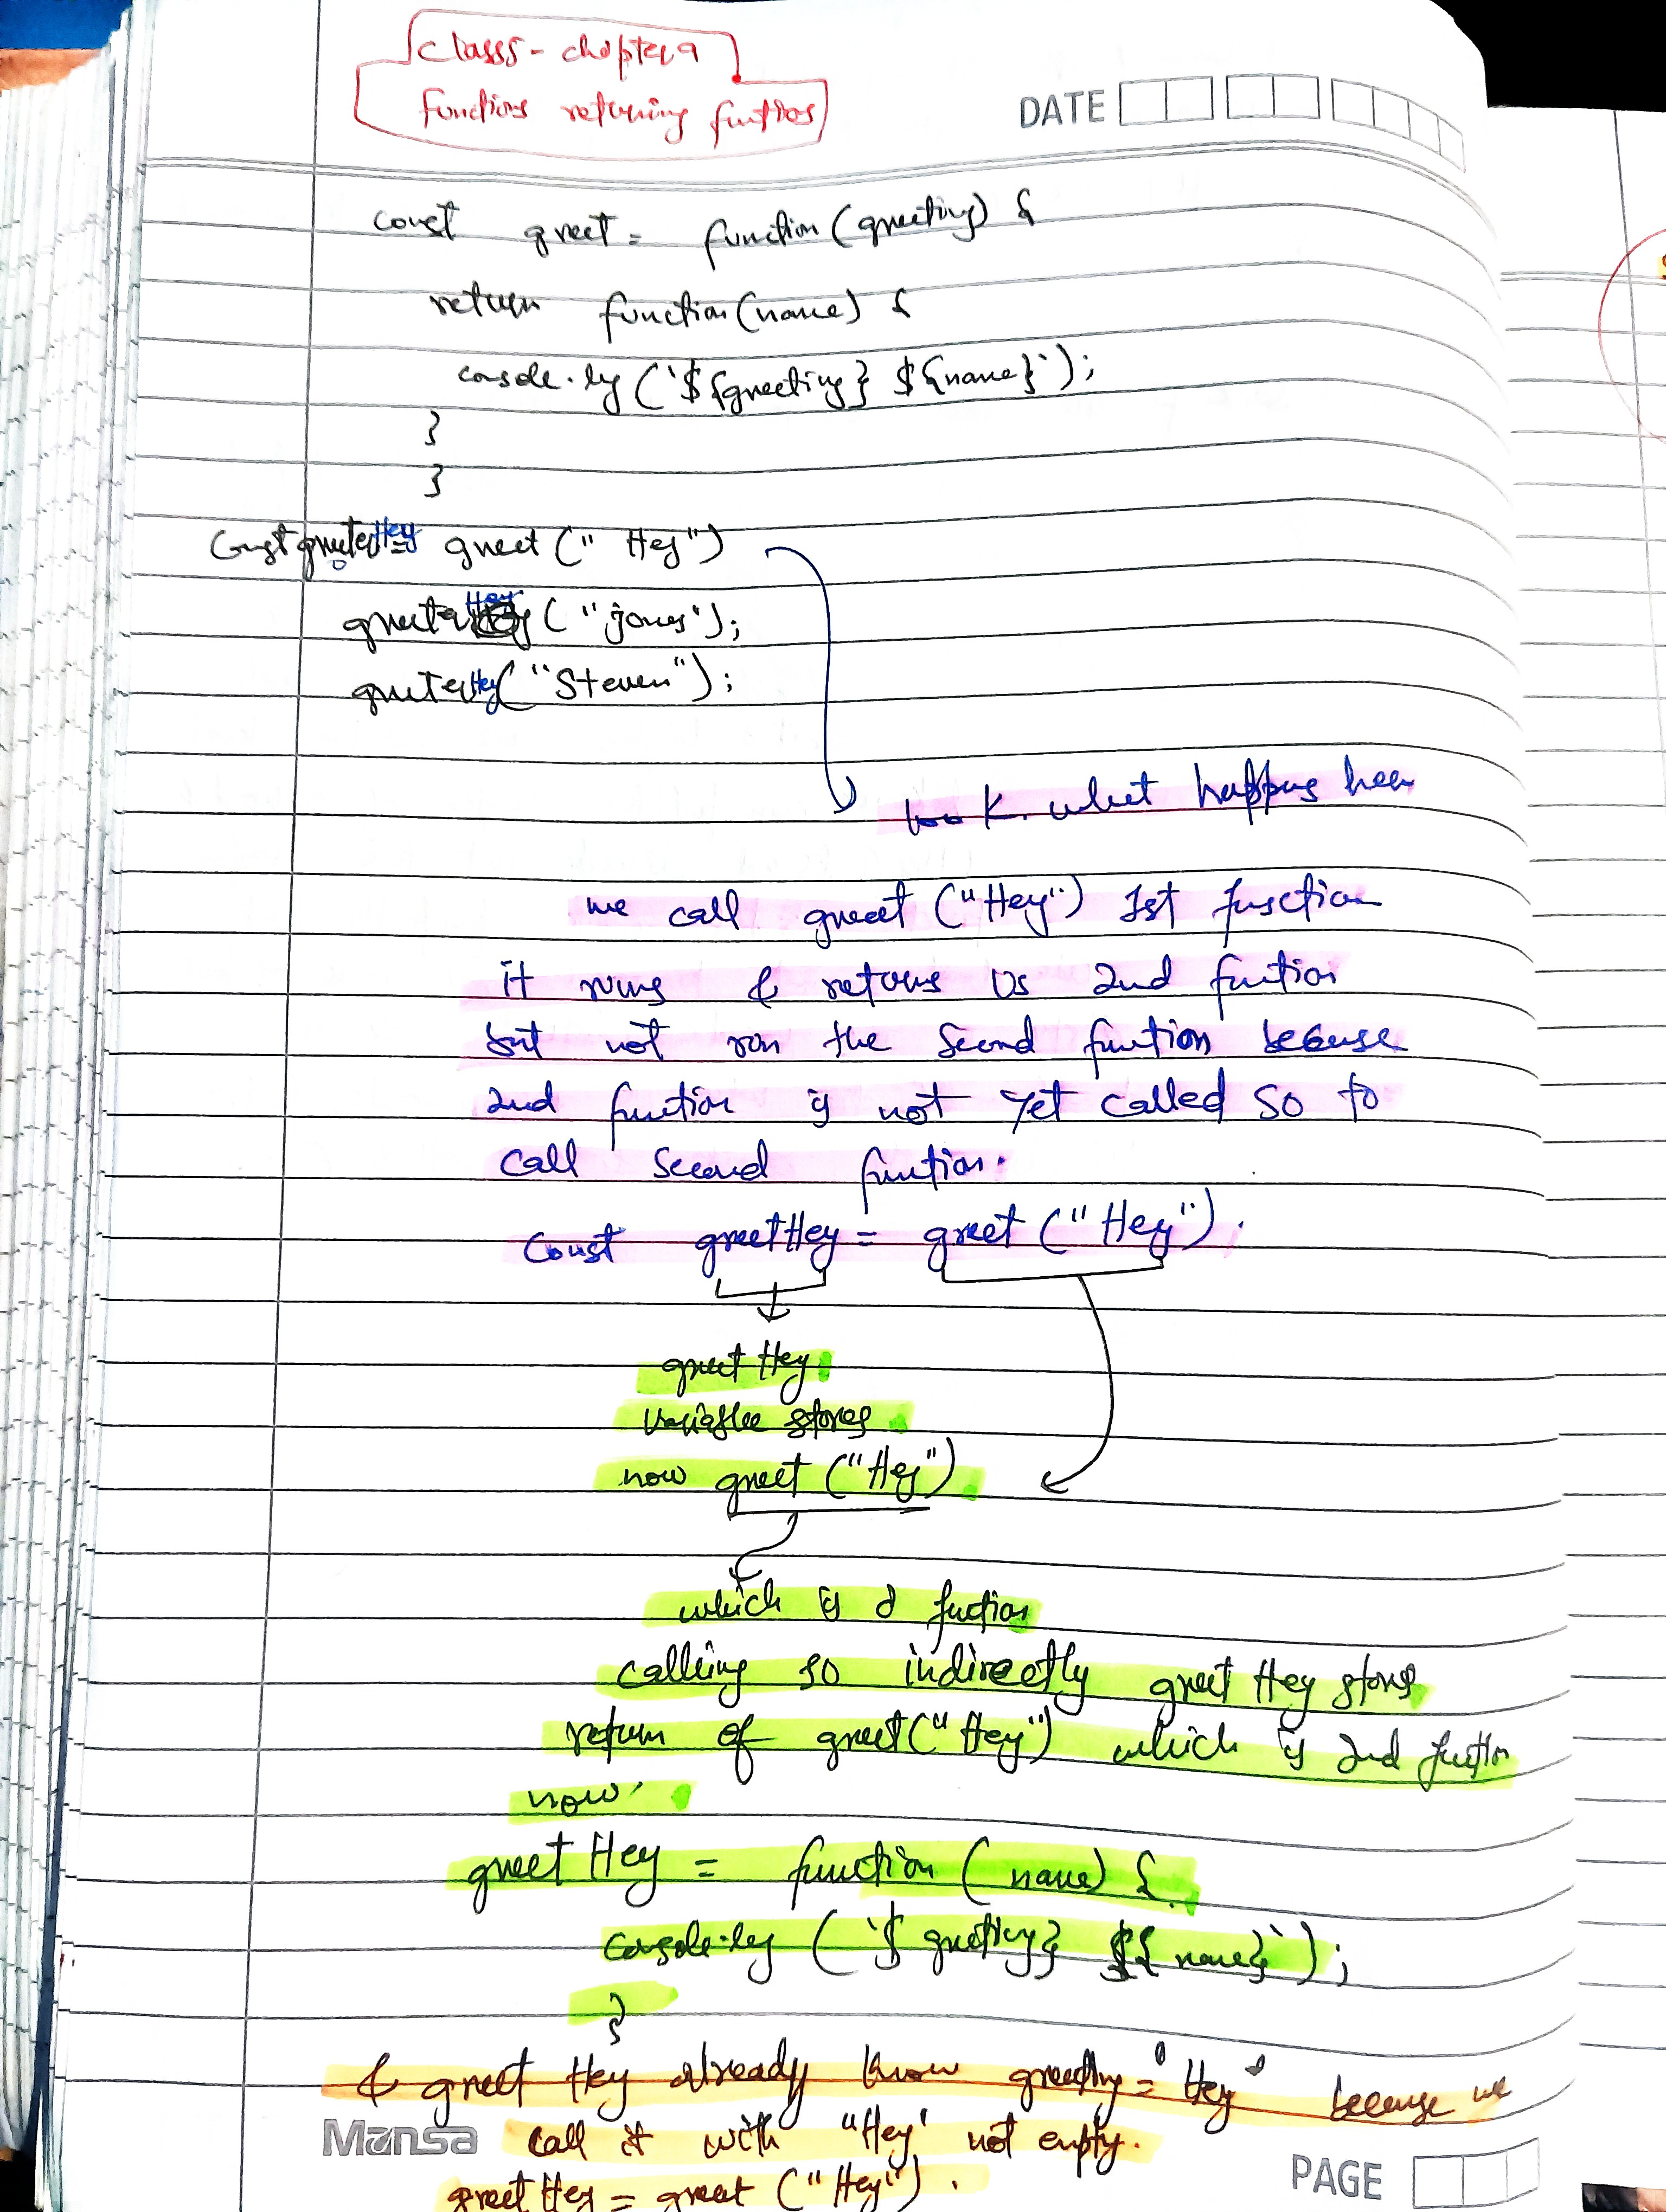 class5 - chapter 9
functions returning functios
DATE
const greet = function(greeting) {
return function(name) {
console.log(`${greeting} ${name}`);
}
}
Const greeterHey = greet ("Hey")
greeterHey ("jonas");
greeterHey ("Steven");
look what happens here
we call greet ("Hey") 1st function
it runs & returns us 2nd fuction
but not run the second function because
2nd function is not yet called so to
call second function.
const greetHey = greet ("Hey").
greet Hey
variable stores
now greet ("Hey")
which is a fuction
calling so indirectly greet Hey stores
return of greet("Hey") which is 2nd fuctin
now
greet Hey = function (name) {
console.log (`$ greeting} ${name}`);
}
& greet Hey already know greeting = "Hey" because we
call it with "Hey" not empty.
Mansa
greet Hey = greet ("Hey").
PAGE